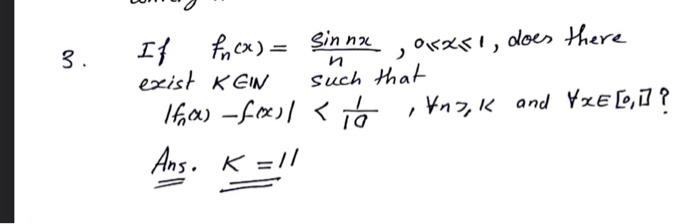 3. If fₙ(x) = sin nx / n , 0≤x≤1, does there
exist K∈ℕ such that
|fₙ(x) - f(x)| < 1/10 , ∀n≥K and ∀x∈[0,1]?
Ans. K = 11